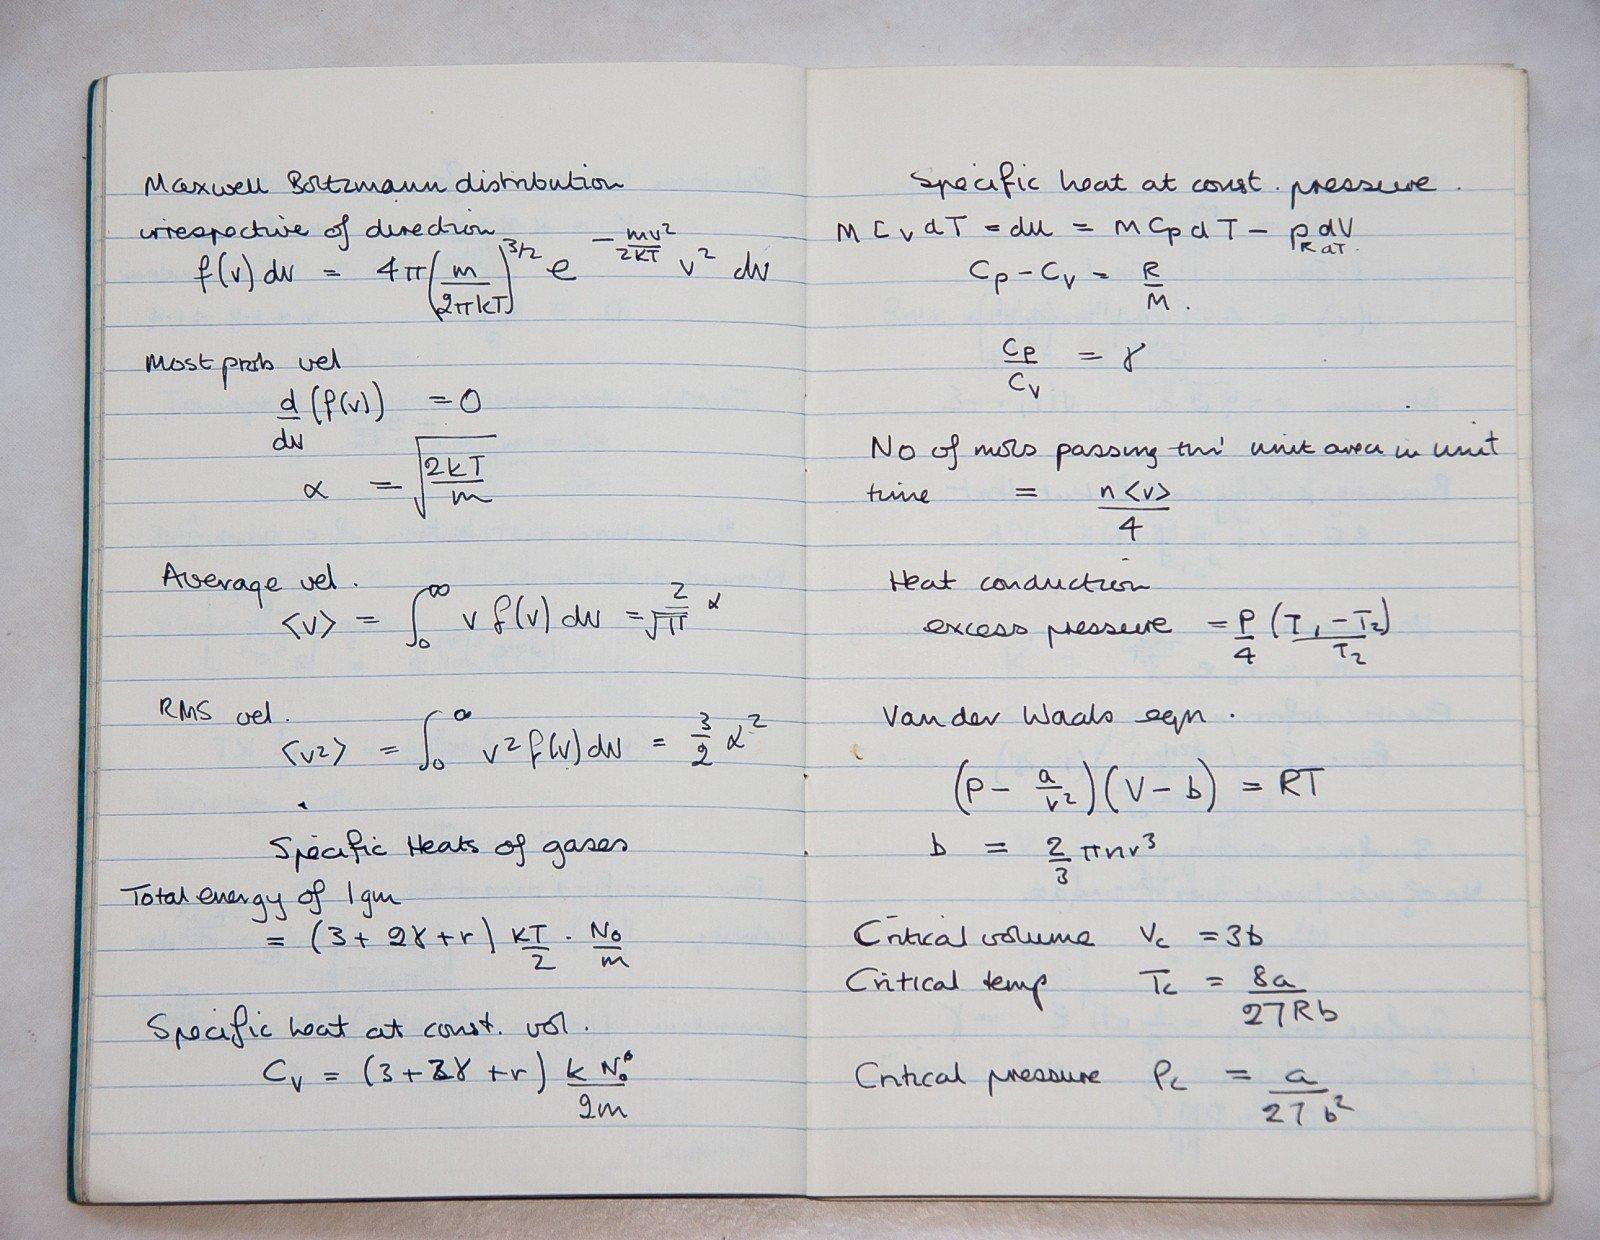 Maxwell Boltzmann distribution
irrespective of direction
f(v) dv = 4π(m/2πkT)^3/2 e^-mv²/2kT v² dv
Most prob vel
d/dv (f(v)) = 0
α = √(2kT/m)
Average vel.
<v> = ∫₀^∞ v f(v) dv = 2/√π α
RMS vel.
<v²> = ∫₀^∞ v² f(v) dv = 3/2 α²
Specific Heats of gases
Total energy of 1gm
= (3 + 2γ + r) kT/2 · N₀/m
Specific heat at const. vol.
Cv = (3 + 2γ + r) k N₀/2m
Specific heat at const. pressure.
M Cv dT = du = M Cp dT - p dV
R dT
Cp - Cv = R/M.
Cp/Cv = γ
No of mols passing thr' unit area in unit
time = n<v>/4
Heat conduction
excess pressure = P/4 (T₁ - T₂)/T₂
Van der Waals eqn.
(P - a/v²)(V - b) = RT
b = 2/3 πnr³
Critical volume Vc = 3b
Critical temp Tc = 8a/27Rb
Critical pressure Pc = a/27b²